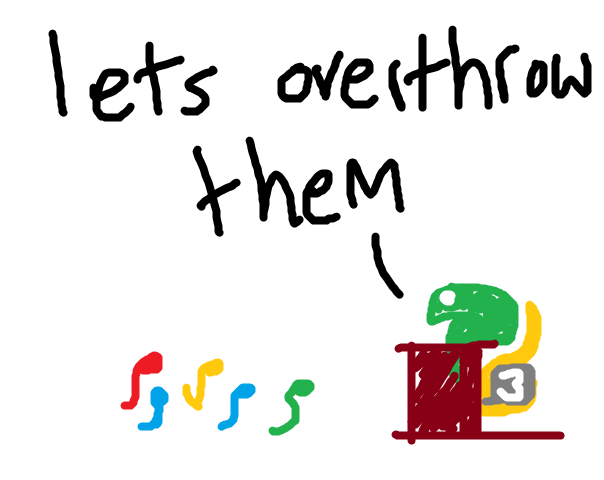 lets overthrow
them
3